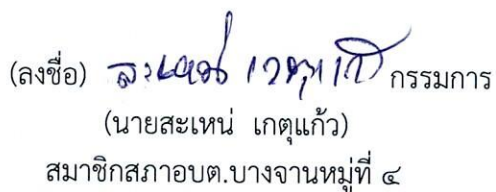 (ลงชื่อ) สะเหน่ เกตุแก้ว กรรมการ
(นายสะเหน่ เกตุแก้ว)
สมาชิกสภาอบต.บางจานหมู่ที่ ๔